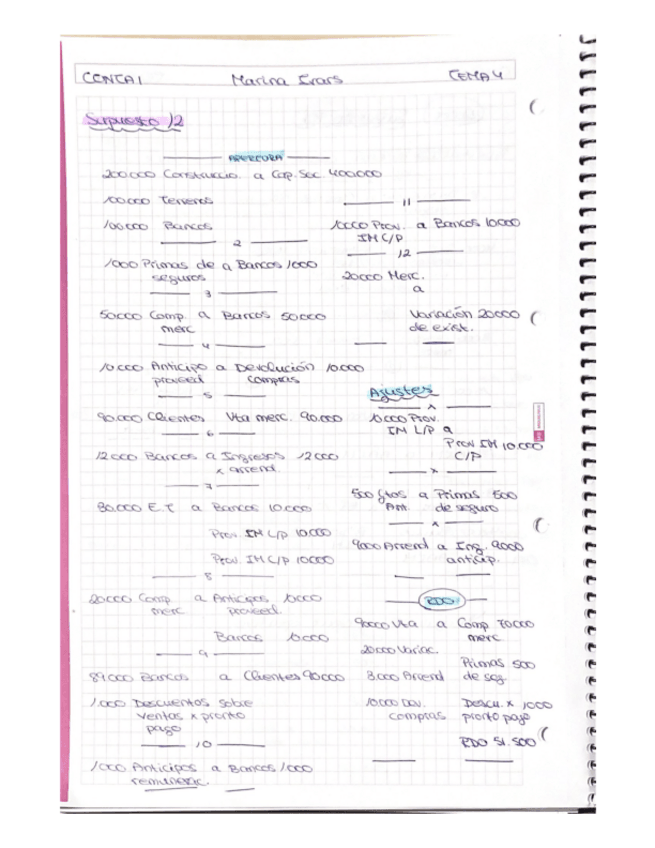 CONTA I Marina Ivars TEMA 4
Supuesto 12
APERTURA
200.000 Construccio. a Cap. Soc. 400.000
100.000 Terrenos
100.000 Bancos
2
1000 Primas de a Bancos 1000
seguros
3
50.000 Comp a Bancos 50.000
merc
4
10.000 Anticipo a Devolución 10.000
proveed compras
5
90.000 Clientes Vta merc. 90.000
6
12000 Bancos a Ingresos 12000
x arrend.
7
30.000 E.T a Bancos 10.000
Prov. IM L/P 10.000
Prov. IM C/P 10000
8
20000 Comp a Anticipos 10000
merc proveed.
Bancos 10000
9
89.000 Bancos a Clientes 90.000
1.000 Descuentos sobre
ventas x pronto
pago
10
1000 Anticipos a Bancos 1000
remunerac.
11
10000 Prov. a Bancos 10000
IM C/P
12
20000 Merc.
a
Variación 20000
de exist.
Ajustes
x
10.000 Prov.
IM L/P a
Prov IM 10.000
C/P
x
500 Gtos a Primas 500
Am. de seguro
x
9000 Arrend a Ing. 9000
anticip.
RDO
90000 Vta a Comp 70000
merc
20000 Variac.
Primas 500
3.000 Arrend de seg.
10.000 Dev. Descu. x 1000
compras pronto pago
RDO 51.500